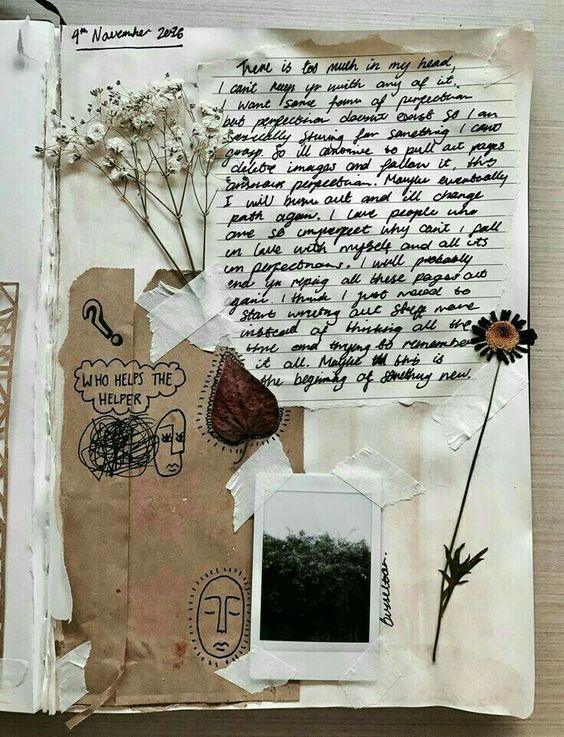 4th November 2016
There is too much in my head,
I can't keep up with any of it.
I want some form of perfection
but perfection doesnt exist so I am
basically striving for something I cant
grasp. So ill continue to pull out pages
delete images and follow it, this
perfection. Maybe eventually
I will burn out and ill change
path again. I love people who
are so imperfect why can't I fall
in love with myself and all its
imperfections. I will probably
end up ripping all these pages out
again I think I just need to
start writing out stuff more
instead of thinking all the
time and trying to remember
it all. Maybe this is
the beginning of something new.
?
WHO HELPS THE
HELPER